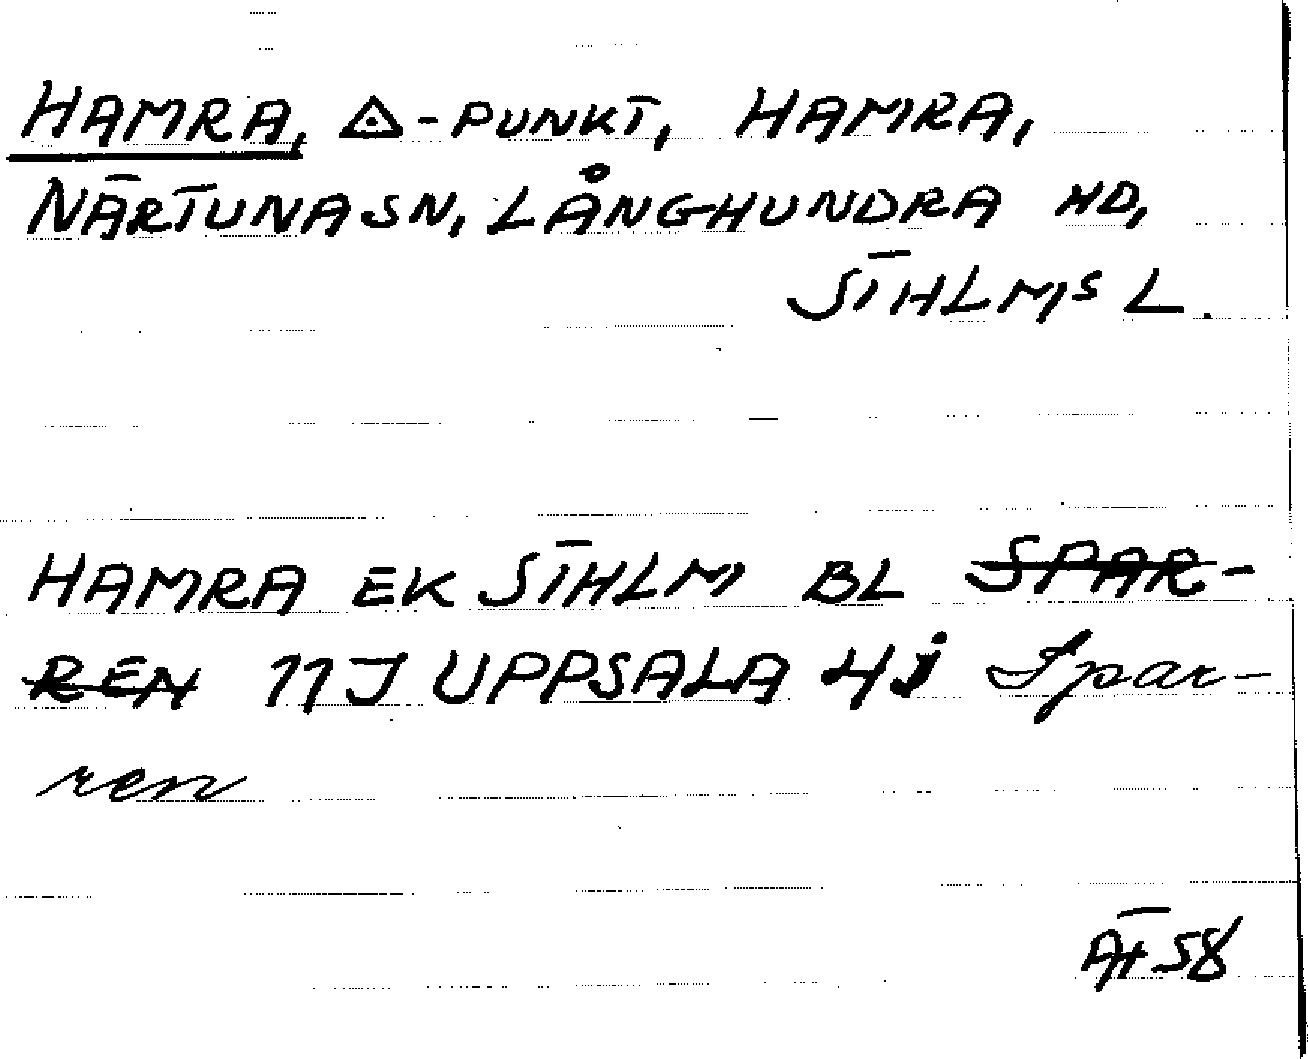 HAMRA, ◬-PUNKT, HAMRA,
NÄRTUNA SN, LÅNGHUNDRA HD,
STHLMS L.
HAMRA EK STHLM BL SPAR-
REN 11J UPPSALA 4j Spar-
ren
ÄT 58